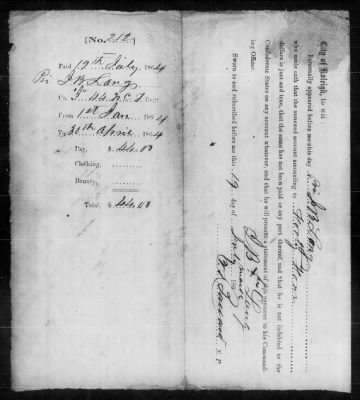 [No. 212]
Paid 19th July 1864
Pri J B Lang
Co. "I" 44 N.C.T. Regt
From 1st Jan 1864
To 30th April 1864
Pay, $ 44.00
Clothing,
Bounty,
Total, $ 44.00
City of Raleigh, to wit:
Personally appeared before me this day Pri J B Lang
who made oath that the annexed account amounting to Forty four
dollars is just and true, that the same has not been paid or any part thereof, and that he is not indebted to the
Confederate States on any account whatever, and that he will present a statement of this payment to his Commanding Officer.
J B Lang
Sworn to and subscribed before me this 19 day of July 186
N. P.